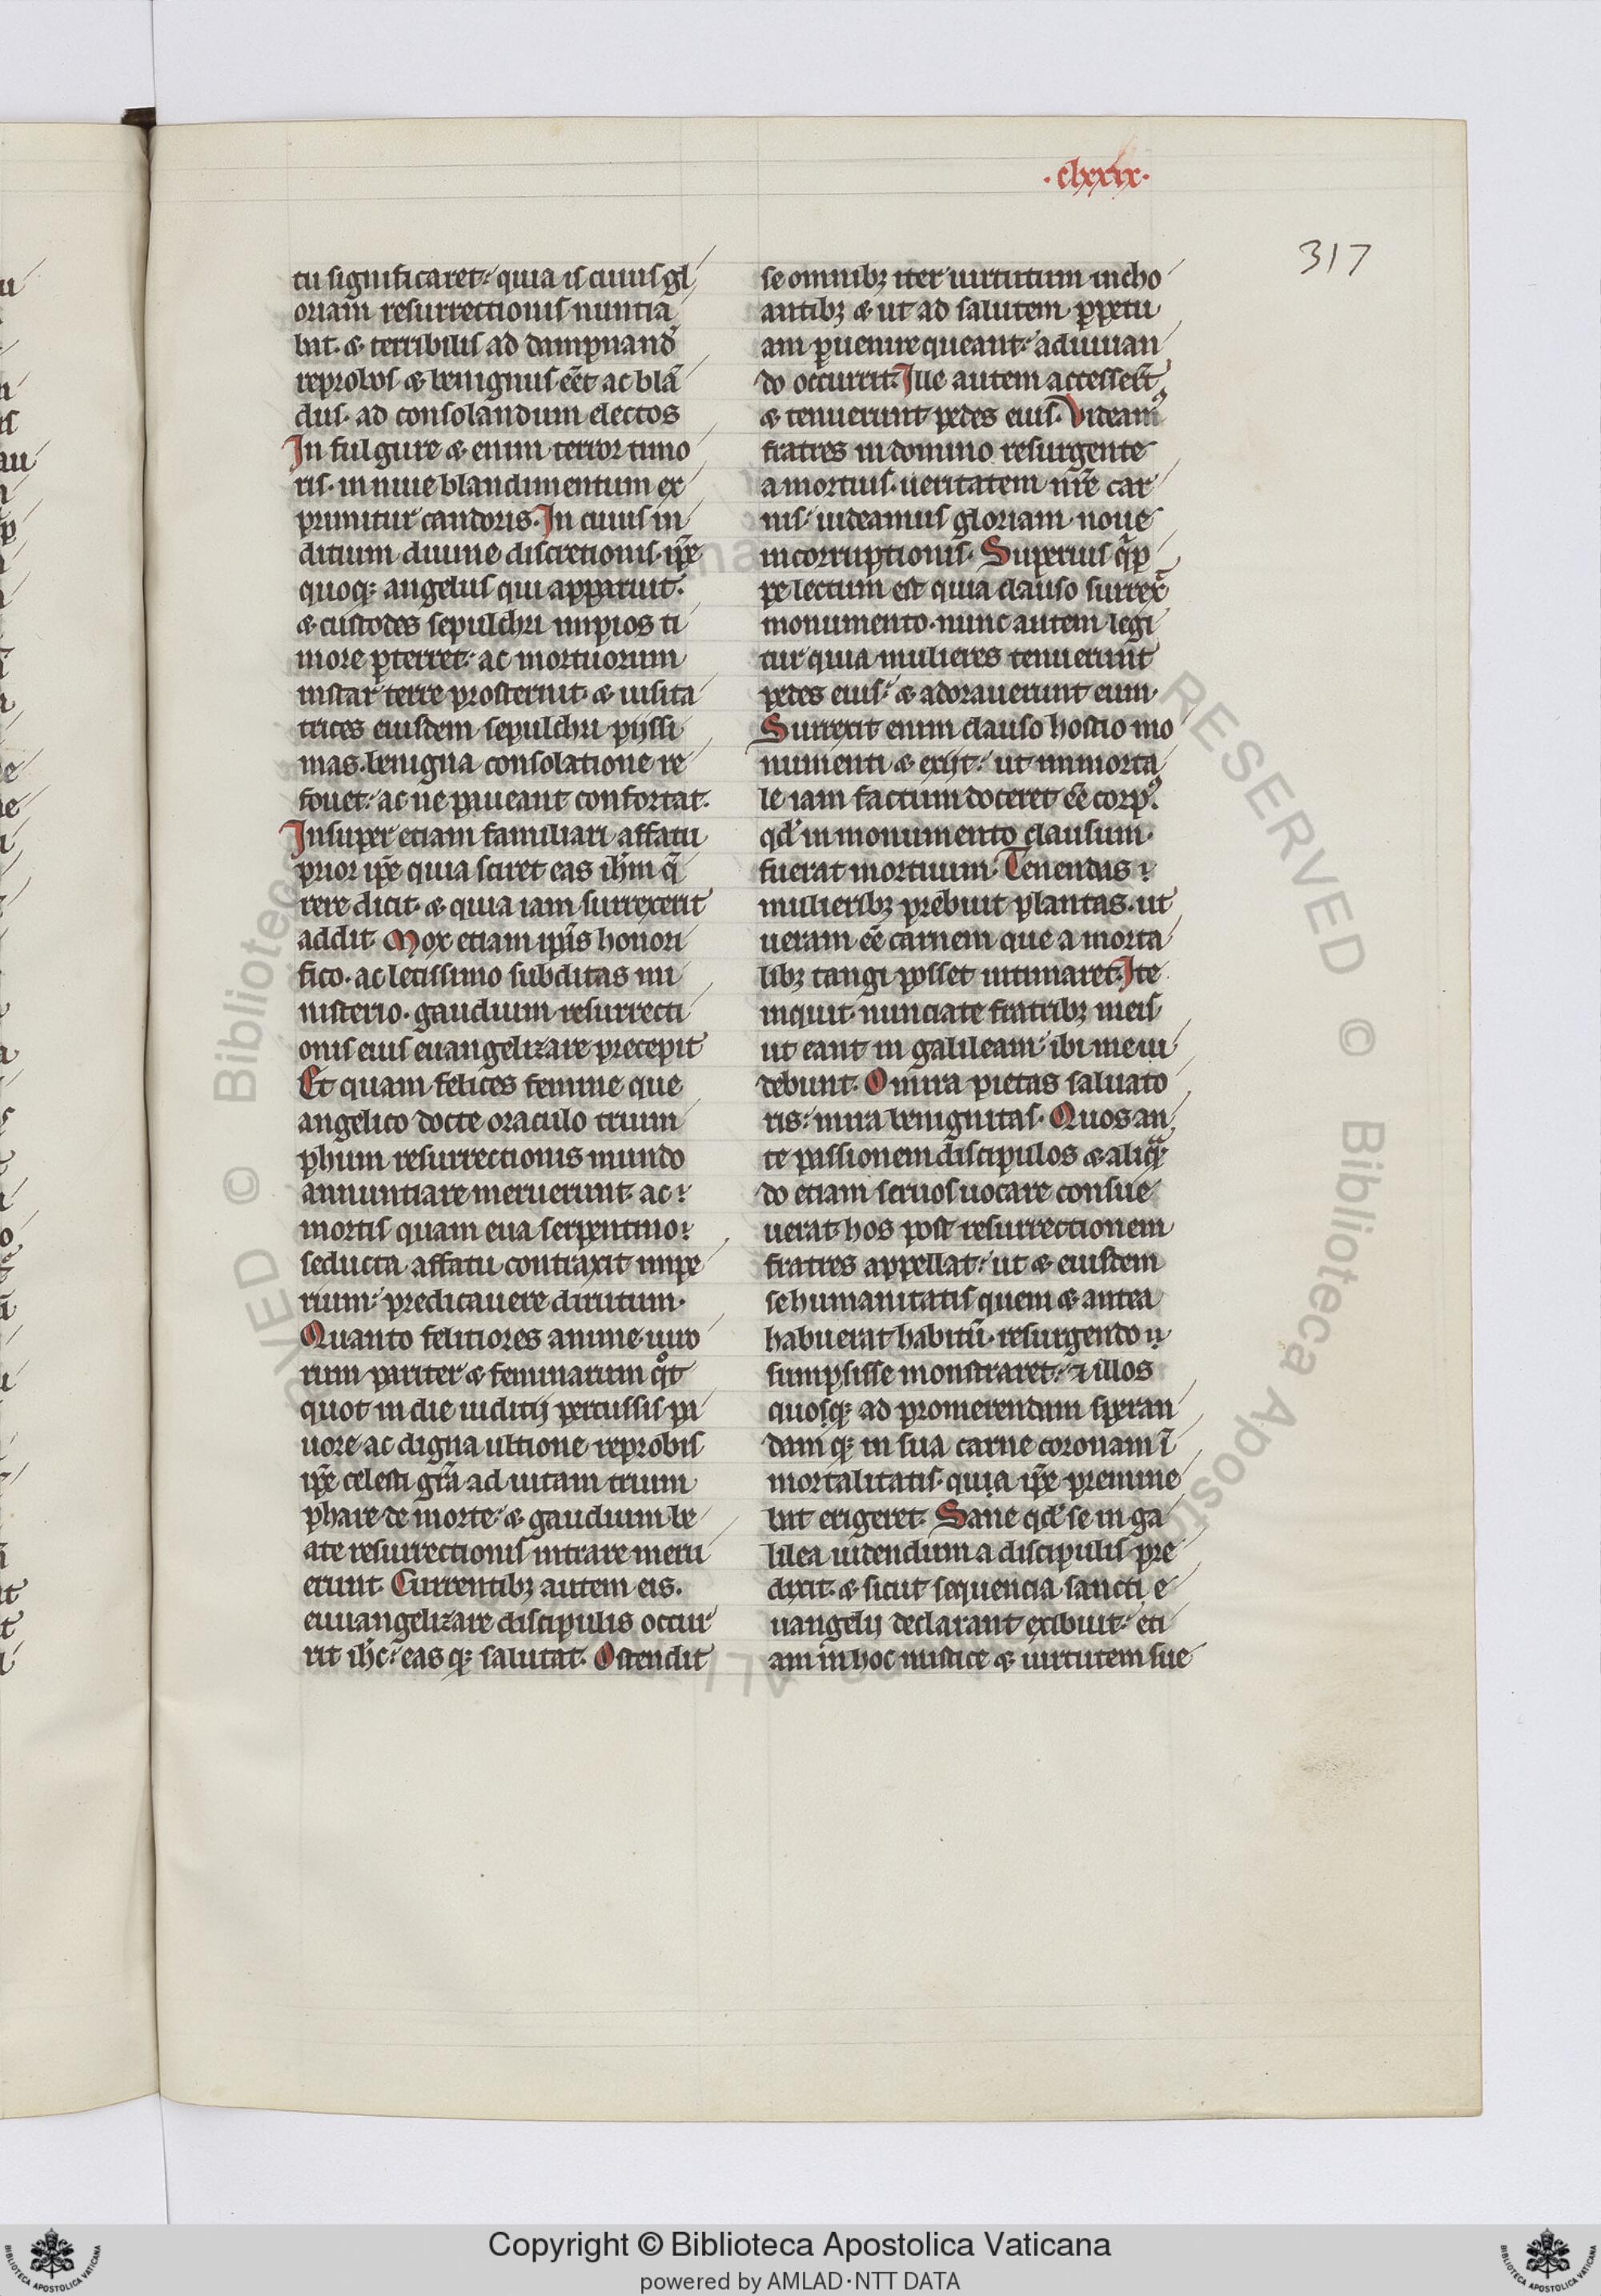 ·clxxix·
317
tu significaret: quia is cuius gl
oriam resurrectionis nuntia
bat. & terribilis ad dampnand̉
reprobos & benignus eēt ac blā
dus. ad consolandum electos
In fulgure & enim terror timo
ris. in niue blandimentum ex
primitur candoris. In cuius in
ditium diuine discretionis. ip̄e
quoq; angelus qui apparuit.
& custodes sepulchri impios ti
more ꝑterret: ac mortuorum
instar terre prosternit. & uisita
trices eiusdem sepulchri pijssi
mas. benigna consolatione re
fouet: ac ne paueant confortat.
Insuper etiam familiari affatu
prior ip̄e quia sciret eas ih̄m q̄
rere dicit. & quia iam surrexerit
addit. Mox etiam ip̄is honori
fico. ac letissimo subditas mi
nisterio. gaudium resurrecti
onis eius euangelizare precepit
Et quam felices femine que
angelico docte oraculo trium
phum resurrectionis mundo
annuntiare meruerunt. ac
mortis quam eua serpentino
seducta affatu contraxit impe
rium: predicauere dirutum.
Quanto felitiores anime uiro
rum pariter & feminarum qͦt
quot in die iuditij percussis pa
uore ac digna ultione reprobis
ip̄e celesti gr̄a ad uitam trium
phare de morte: & gaudium be
ate resurrectionis intrare meru
erunt. Currentibȝ autem eis.
euuangelizare discipulis occur
rit ih̄c: eas q; salutat. Ostendit
se omnibȝ iter uirtutum incho
antibȝ & ut ad salutem ꝑpetu
am ꝑuenire queant: adiuuan
do occurrit. Ille autem accesser̄t
& tenuerunt pedes eius. Videamꝰ
fratres in domino resurgente
a mortuis. ueritatem nr̄e car
nis: uideamus gloriam noue
incorruptionis. Superius q̄p
pe lectum est quia clauso surrex̄
monumento. nunc autem legi
tur quia mulieres tenuerunt
pedes eius: & adorauerunt eum.
Surrexit enim clauso hostio mo
numenti & exijt: ut immorta
le iam factum doceret eē corpꝰ.
qđ in monumento clausum
fuerat mortuum. Tenendas
mulieribȝ prebuit plantas. ut
ueram eē carnem que a morta
libȝ tangi posset intimaret. Ite
inquit nunciate fratribȝ meis
ut eant in galileam: ibi me ui
debunt. O mira pietas saluato
ris: mira benignitas. Quos an
te passionem discipulos & aliqn̄
do etiam seruos uocare consue
uerat hos post resurrectionem
fratres appellat: ut & eiusdem
se humanitatis quem & antea
habuerat habitū. resurgendo
sumpsisse monstraret: ⁊ illos
quosq; ad promerendam speran
dam q; in sua carne coronam ī
mortalitatis. quia ip̄e premine
bat erigeret. Sane qđ se in ga
lilea uidendum a discipulis pre
dixit. & sicut sequencia sancti e
uangelij declarant exibuit: eti
am in hoc mistice & uirtutem sue